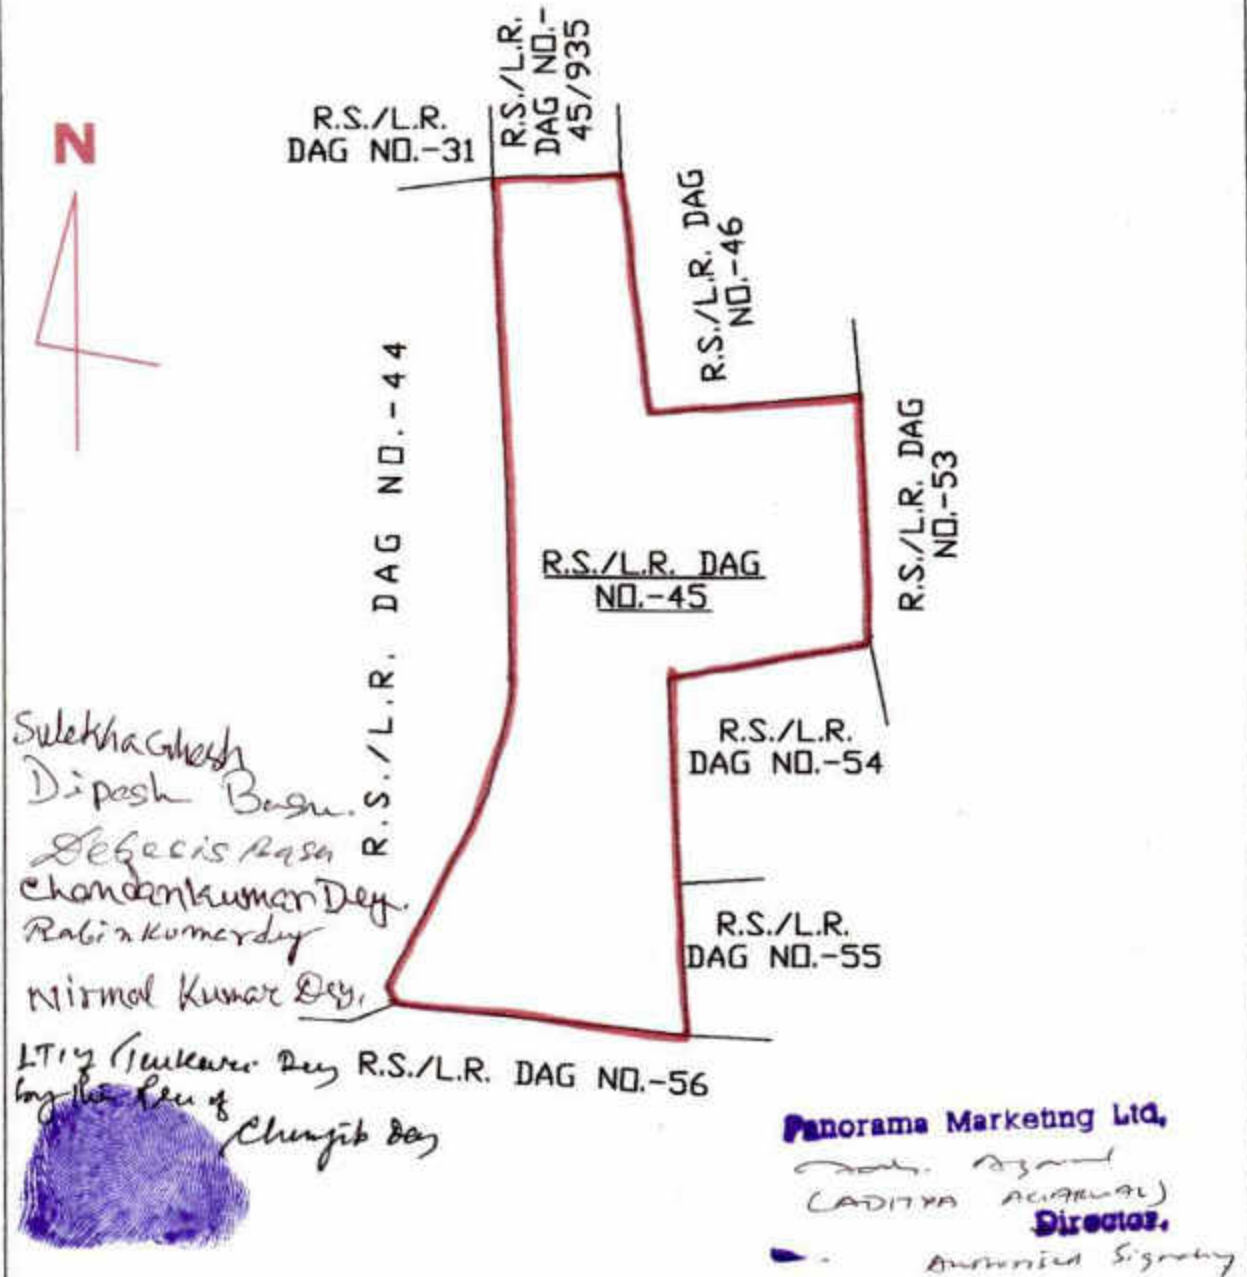 R.S./L.R.
DAG NO.-
45/935
R.S./L.R.
DAG NO.-31
N
R.S./L.R. DAG
NO.-46
R.S./L.R. DAG NO.-44
R.S./L.R. DAG
NO.-53
R.S./L.R. DAG
NO.-45
R.S./L.R.
DAG NO.-54
R.S./L.R.
DAG NO.-55
Sulekha Ghosh
Dipesh Basu.
Debasis Basu
Chandan Kumar Dey.
Rabin Kumar dey
Nirmal Kumar Dey.
LTI of Tinkari Dey
by the Pen of
R.S./L.R. DAG NO.-56
Panorama Marketing Ltd.
(ADITYA AGARWAL)
Director.
Authorised Signatory